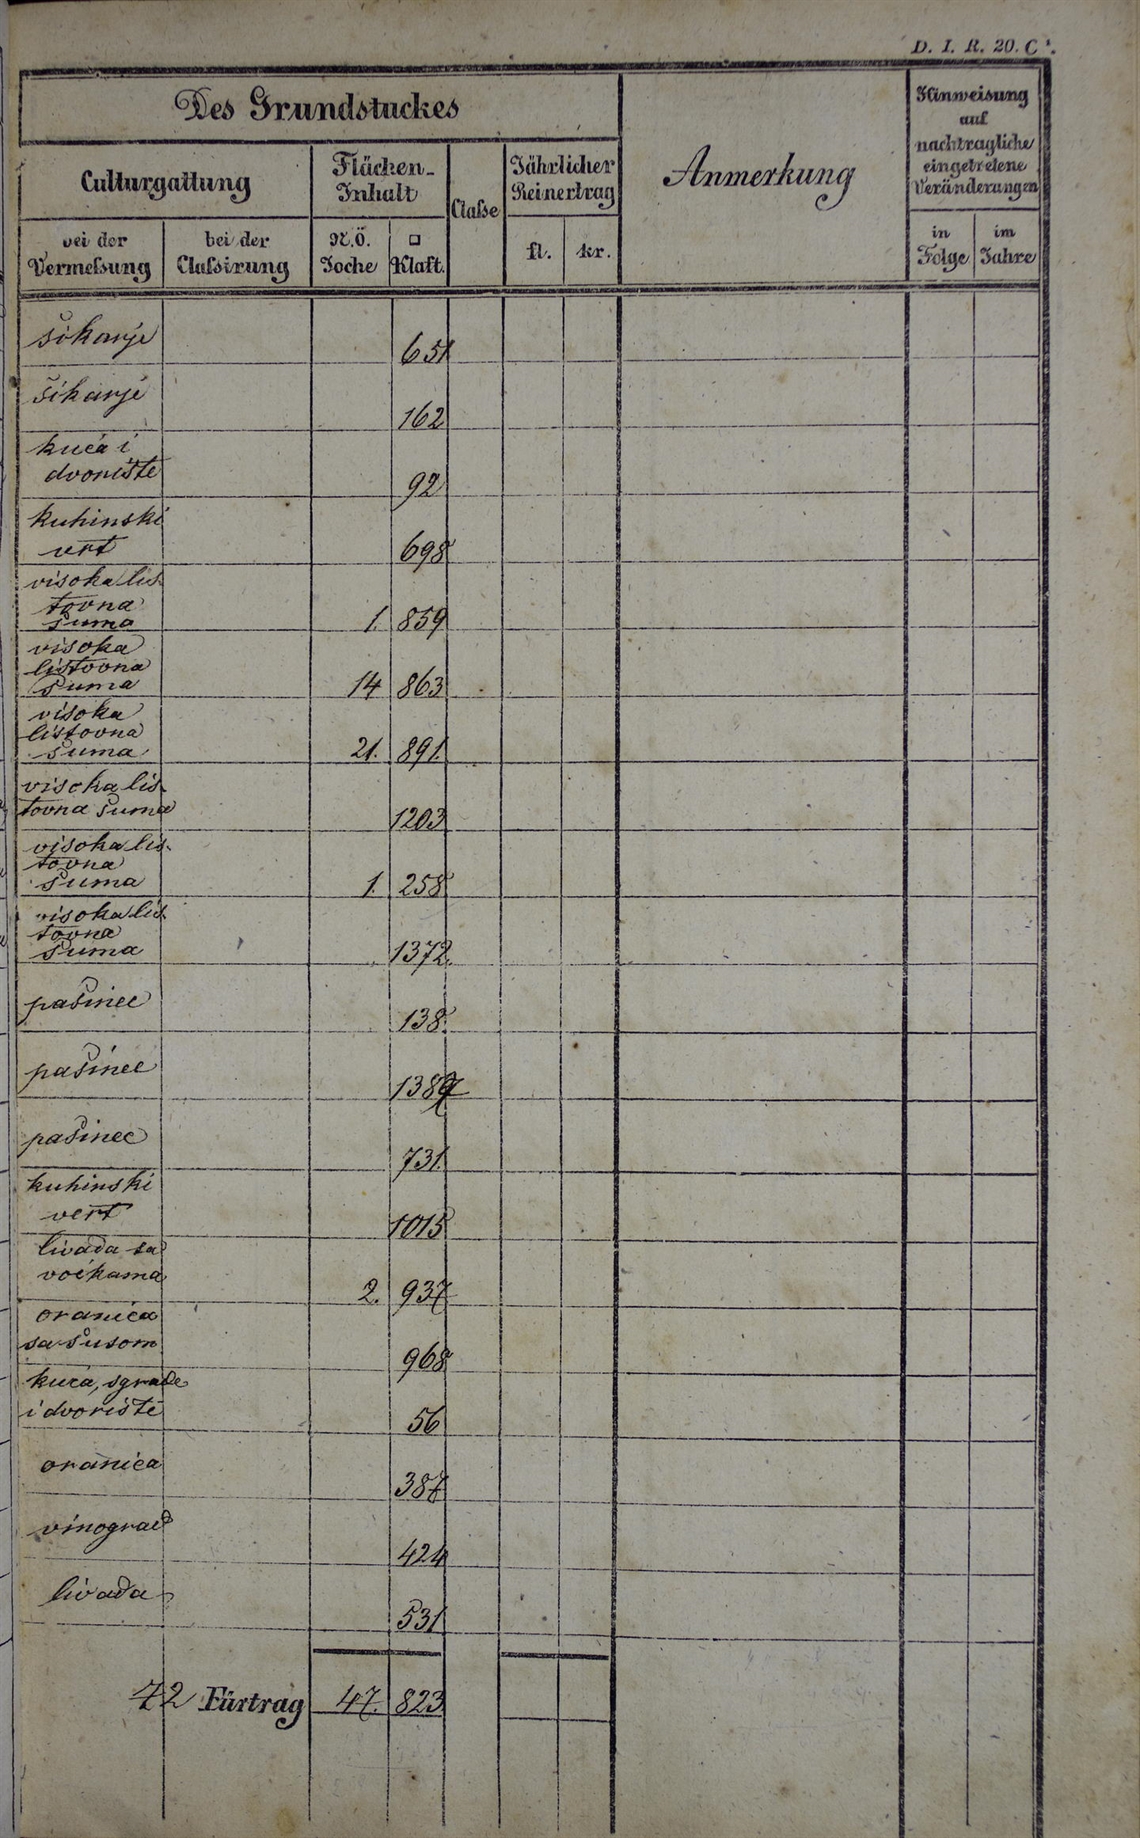 D. I. R. 20. C¹.
Des Grundstuckes
Anmerkung
Hinweisung
auf
nachtragliche
eingetretene
Veränderungen
Culturgattung
Flächen-
Inhalt
Claſse
Jährlicher
Reinertrag
bei der
Vermeſsung
bei der
Claſsirung
N.Ö.
Joche
□
Klaft.
fl.
kr.
in
Folge
im
Jahre
šikarje
651
šikarje
162
kuća i
dvorište
92
kuhinski
vert
698
visoka lis-
tovna
šuma
1. 859
visoka
listovna
šuma
14 863
visoka
listovna
šuma
21. 891
visoka lis-
tovna šuma
1203
visoka lis-
tovna
šuma
1. 258
visoka lis-
tovna
šuma
1372.
pašinec
138.
pašinec
pašinec
731.
kuhinski
vert
1015
livada sa
voćkama
2. 937
oranica
sa šusom
968
kuća, sgrade
i dvorište
56
oranica
387
vinograd
424
livada
531
72 Fürtrag 47. 823